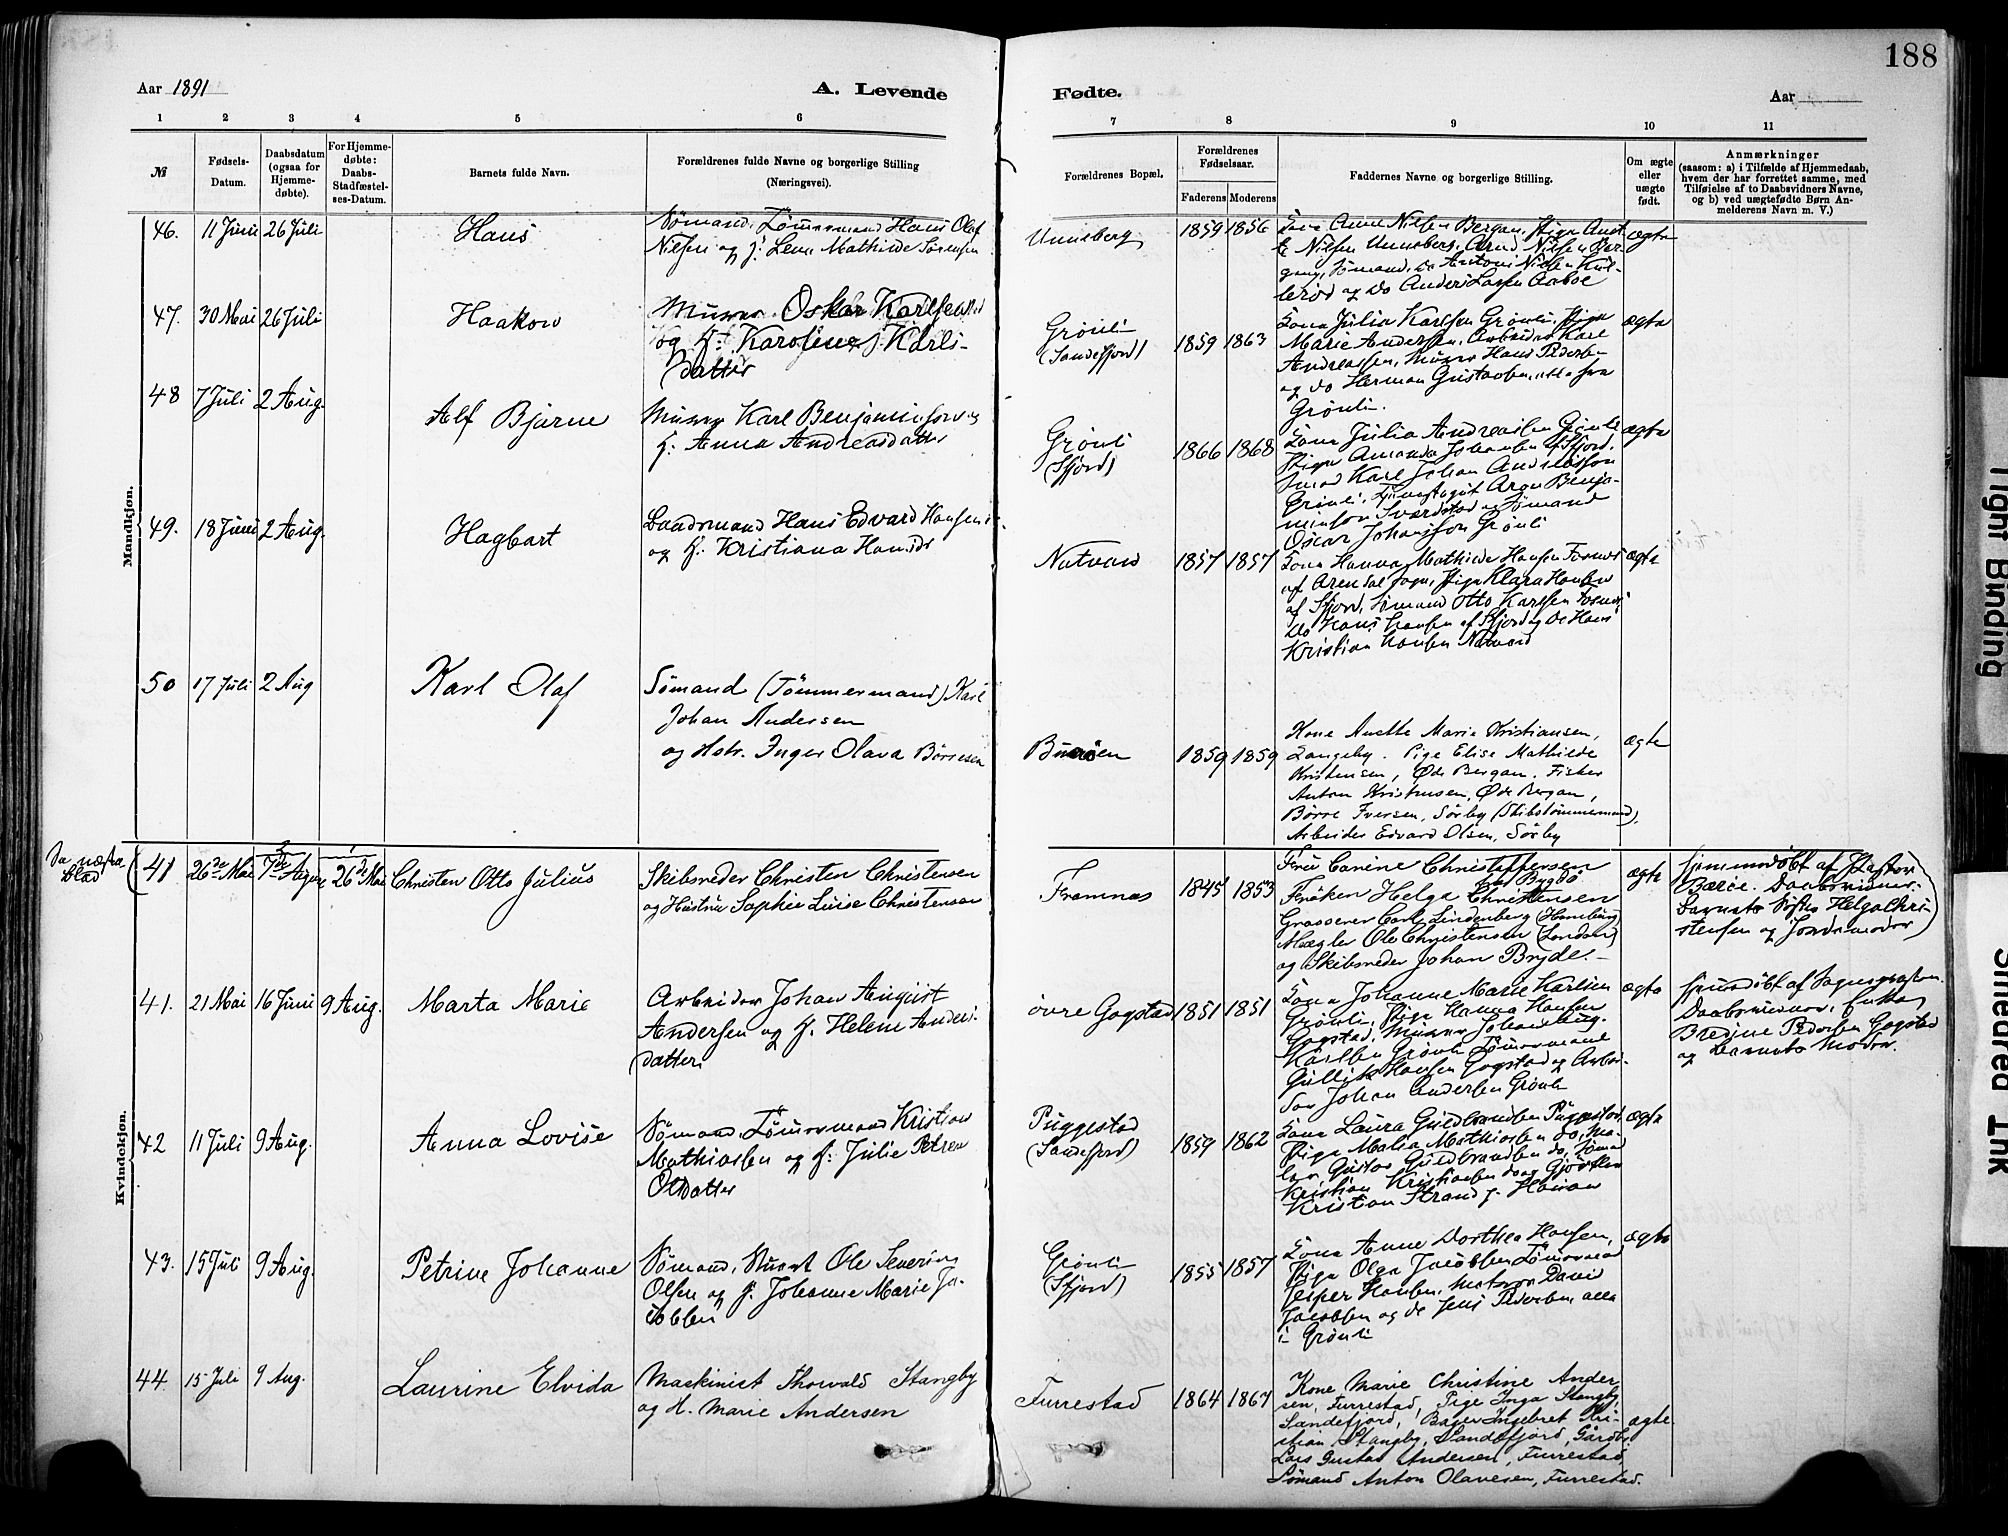 188
Aar 1891
A. Levende
Fødte.
Aar
1 2 3 4 5 6 7 8 9 10 11
№
Fødsels-
Datum.
Daabsdatum
(ogsaa for
Hjemme-
døbte).
For Hjemme-
døbte:
Daabs-
Stadfæstel-
ses-Datum.
Barnets fulde Navn.
Forældrenes fulde Navne og borgerlige Stilling
(Næringsvei).
Forældrenes Bopæl.
Forældrenes
Fødselsaar.
Faderens Moderens
Faddernes Navne og borgerlige Stilling.
Om ægte
eller
uægte
født.
Anmærkninger
(saasom: a) i Tilfælde af Hjemmedaab,
hvem der har forrettet samme, med
Tilføielse af to Daabsvidners Navne,
og b) ved uægtefødte Børn An-
melderens Navn m. V.)
Mandkjøn.
46. 11 Juni 26 Juli
Hans
Sømand, Tømmermand Hans Olaf
Nilsen og H: Lena Mathilde Sørensen
Unneberg
1859 1856
Kona Anne Nilsen Bergan, Pige
Nilsen Unneberg, Arnd Nilsen Ber-
gan, Sømand, do Anton Nilsen
og do Anders Larsen Aaboe
ægte
47. 30 Mai 26 Juli
Haakon
Murer Oskar Karlsen
og H: Karoline Karls-
datter
Grønli
(Sandefjord)
1859 1863
Kona Julia Karlsen Grønli, Pige
Marie Andersen, Arbeider Karl
Andreassen, Murer Hans Pederse-
og do Herman Gustavsen, alle fra
Grønli.
ægte
48 7 Juli 2 Aug.
Alf Bjarne
Murer Karl Benjaminson og
H: Anna Andreasdatter
Grønli
(Sfjord)
1866 1868
Kona Julia Andreasen Grønli
Pige Amanda Johansen Sfjord,
Smed Karl Johan Andreasson
Grønli, Aron Benja-
minson Sværdstad og Sømand
Oscar Johansson Grønli
ægte
49. 18 Juni 2 Aug.
Hagbart
Baadsmand Hans Edvard Hansen
og H. Kristiana Hansdr
Natvard
1857 1857
Kona Hanna Mathilde Hansen Fosnes
af Arendal Sogn, Pige Klara Hansen
af Sfjord, Sømand Otto Karlsen Fosnes
do Hans Hansen af Sfjord og do Hans
Kristian Hansen Natvard
ægte
50 17 Juli 2 Aug
Karl Olaf
Sømand (Tømmermand) Karl
Johan Andersen
og Hstr. Inger Olava Børresen
Bueröen
1859 1859
Kone Anette Marie Kristiansen,
Langeby. Pige Elise Mathilde
Kristensen, Øde Bergan. Fisker
Anton Kristensen, Øde Bergan,
Børre Iversen, Sörby (Skibstömmermand),
Arbeider Edvard Olsen, Sörby
ægte
Kvindekjøn.
Se næste
Blad
(41 26de Mai 7de Aug. 26de Mai
Christen Otto Julius
Skibsreder Christen Christensen
og Hustru Sophie Luise Christensen
Framnæs
1845 1853
Fru Canine Christoffersen
Bygdö
Frøken Helga Christensen
Grosserer Carl Lindenberg (Hamburg)
Mægler Ole Christensen (London)
og Skibsreder Johan Bryde.
ægte
Hjemmedøbt af Pastor
Barnets Søster Helga Chri-
stensen og Jordemoder)
41. 21 Mai 16 Juni 9 Aug.
Marta Marie
Arbeider Johan August
Andersen og H. Helene Anders-
datter
övre Gogstad
1851 1851
Kona Johanne Marie Karlsen
Grønli, Pige Hanna Hansen
Gogstad, Murer Johan Aug.
Karlsen Grønli, Tømmermand
Gullik Hansen Gogstad og Arbei-
der Johan Andersen Grønli
ægte
Hjemmedøbt af Sognepresten
Daabsvidner, Enke
Bredine Pedersen Gogstad
og Barnets Moder.
42 11 Juli 9 Aug.
Anna Lovise
Sømand, Tømmermand Kristian
Mathiassen og H: Julie Petrea
Olsdatter
Puggestad
(Sandefjord)
1859 1862
Kona Laura Guldbrandsen Puggestad,
Pige Malia Mathiassen do, Ma-
ler Gustav Guldbrandsen do, Sømand
Kristian Kristiansen do og
Kristian Strand
ægte
43. 15 Juli 9 Aug.
Petrine Johanne
Sømand, Stuert Ole Severin
Olsen og H. Johanne Marie Ja-
cobsen
Grønli
(Sfjord)
1855 1857
Kona Anne Dorthea Hansen,
Pige Olga Jacobsen, Tømmermand
Jesper Hansen, Matros David
Jacobsen og do Jens Pedersen, alle
i Grønli
ægte
44. 15 Juli 9 Aug.
Laurine Elvida
Maskinist Thorvald Stangby
og H. Marie Andersen
Furrestad
1864 1867
Kone Marie Christine Ander-
sen, Furrestad, Pige Inga Stangby,
Sandefjord, Bager Ingebret Kri-
stian Stangby, Sandefjord, Gårdbr.
Lars Gustav Andersen, Furrestad,
Sømand Anton Olavesen, Furrestad.
ægte
Tight Binding
Smeared Ink